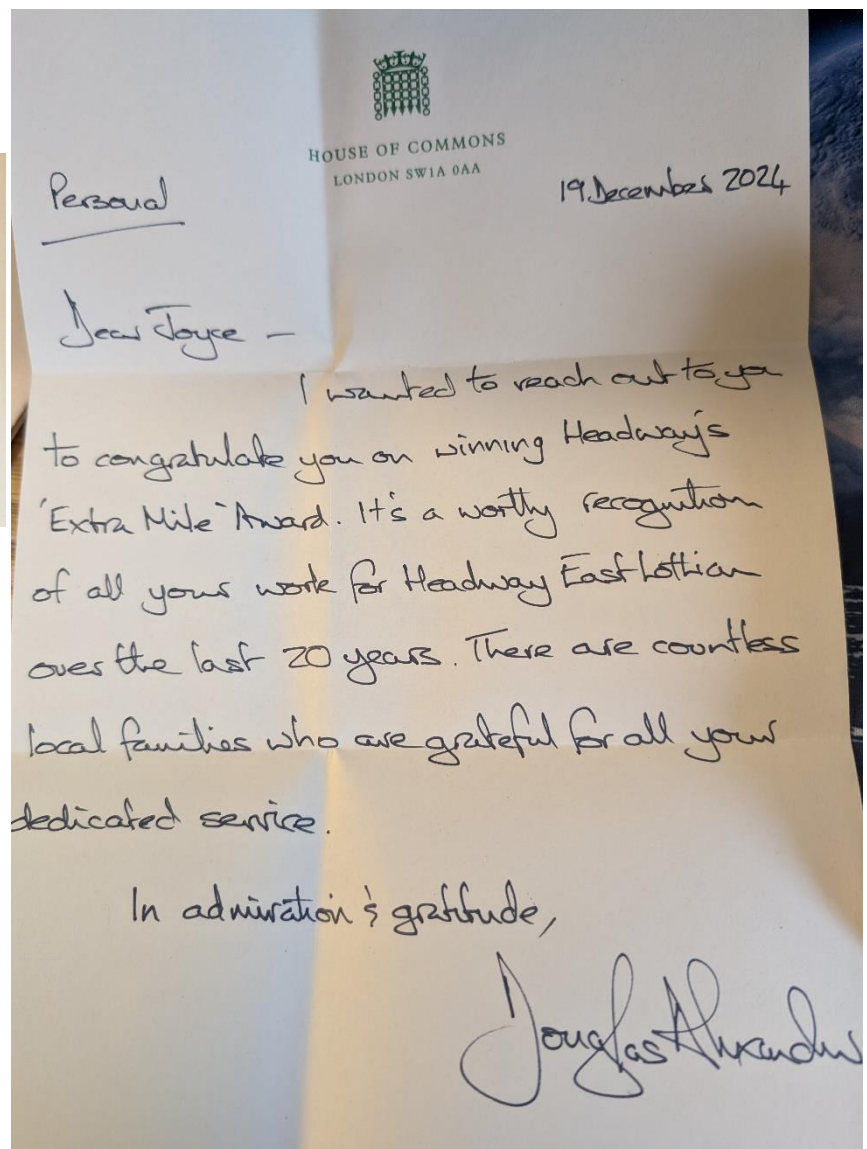 HOUSE OF COMMONS
LONDON SW1A 0AA
Personal
19 December 2024
Dear Joyce –
I wanted to reach out to you
to congratulate you on winning Headway's
'Extra Mile' Award. It's a worthy recognition
of all your work for Headway East Lothian
over the last 20 years. There are countless
local families who are grateful for all your
dedicated service.
In admiration & gratitude,
Douglas Alexander